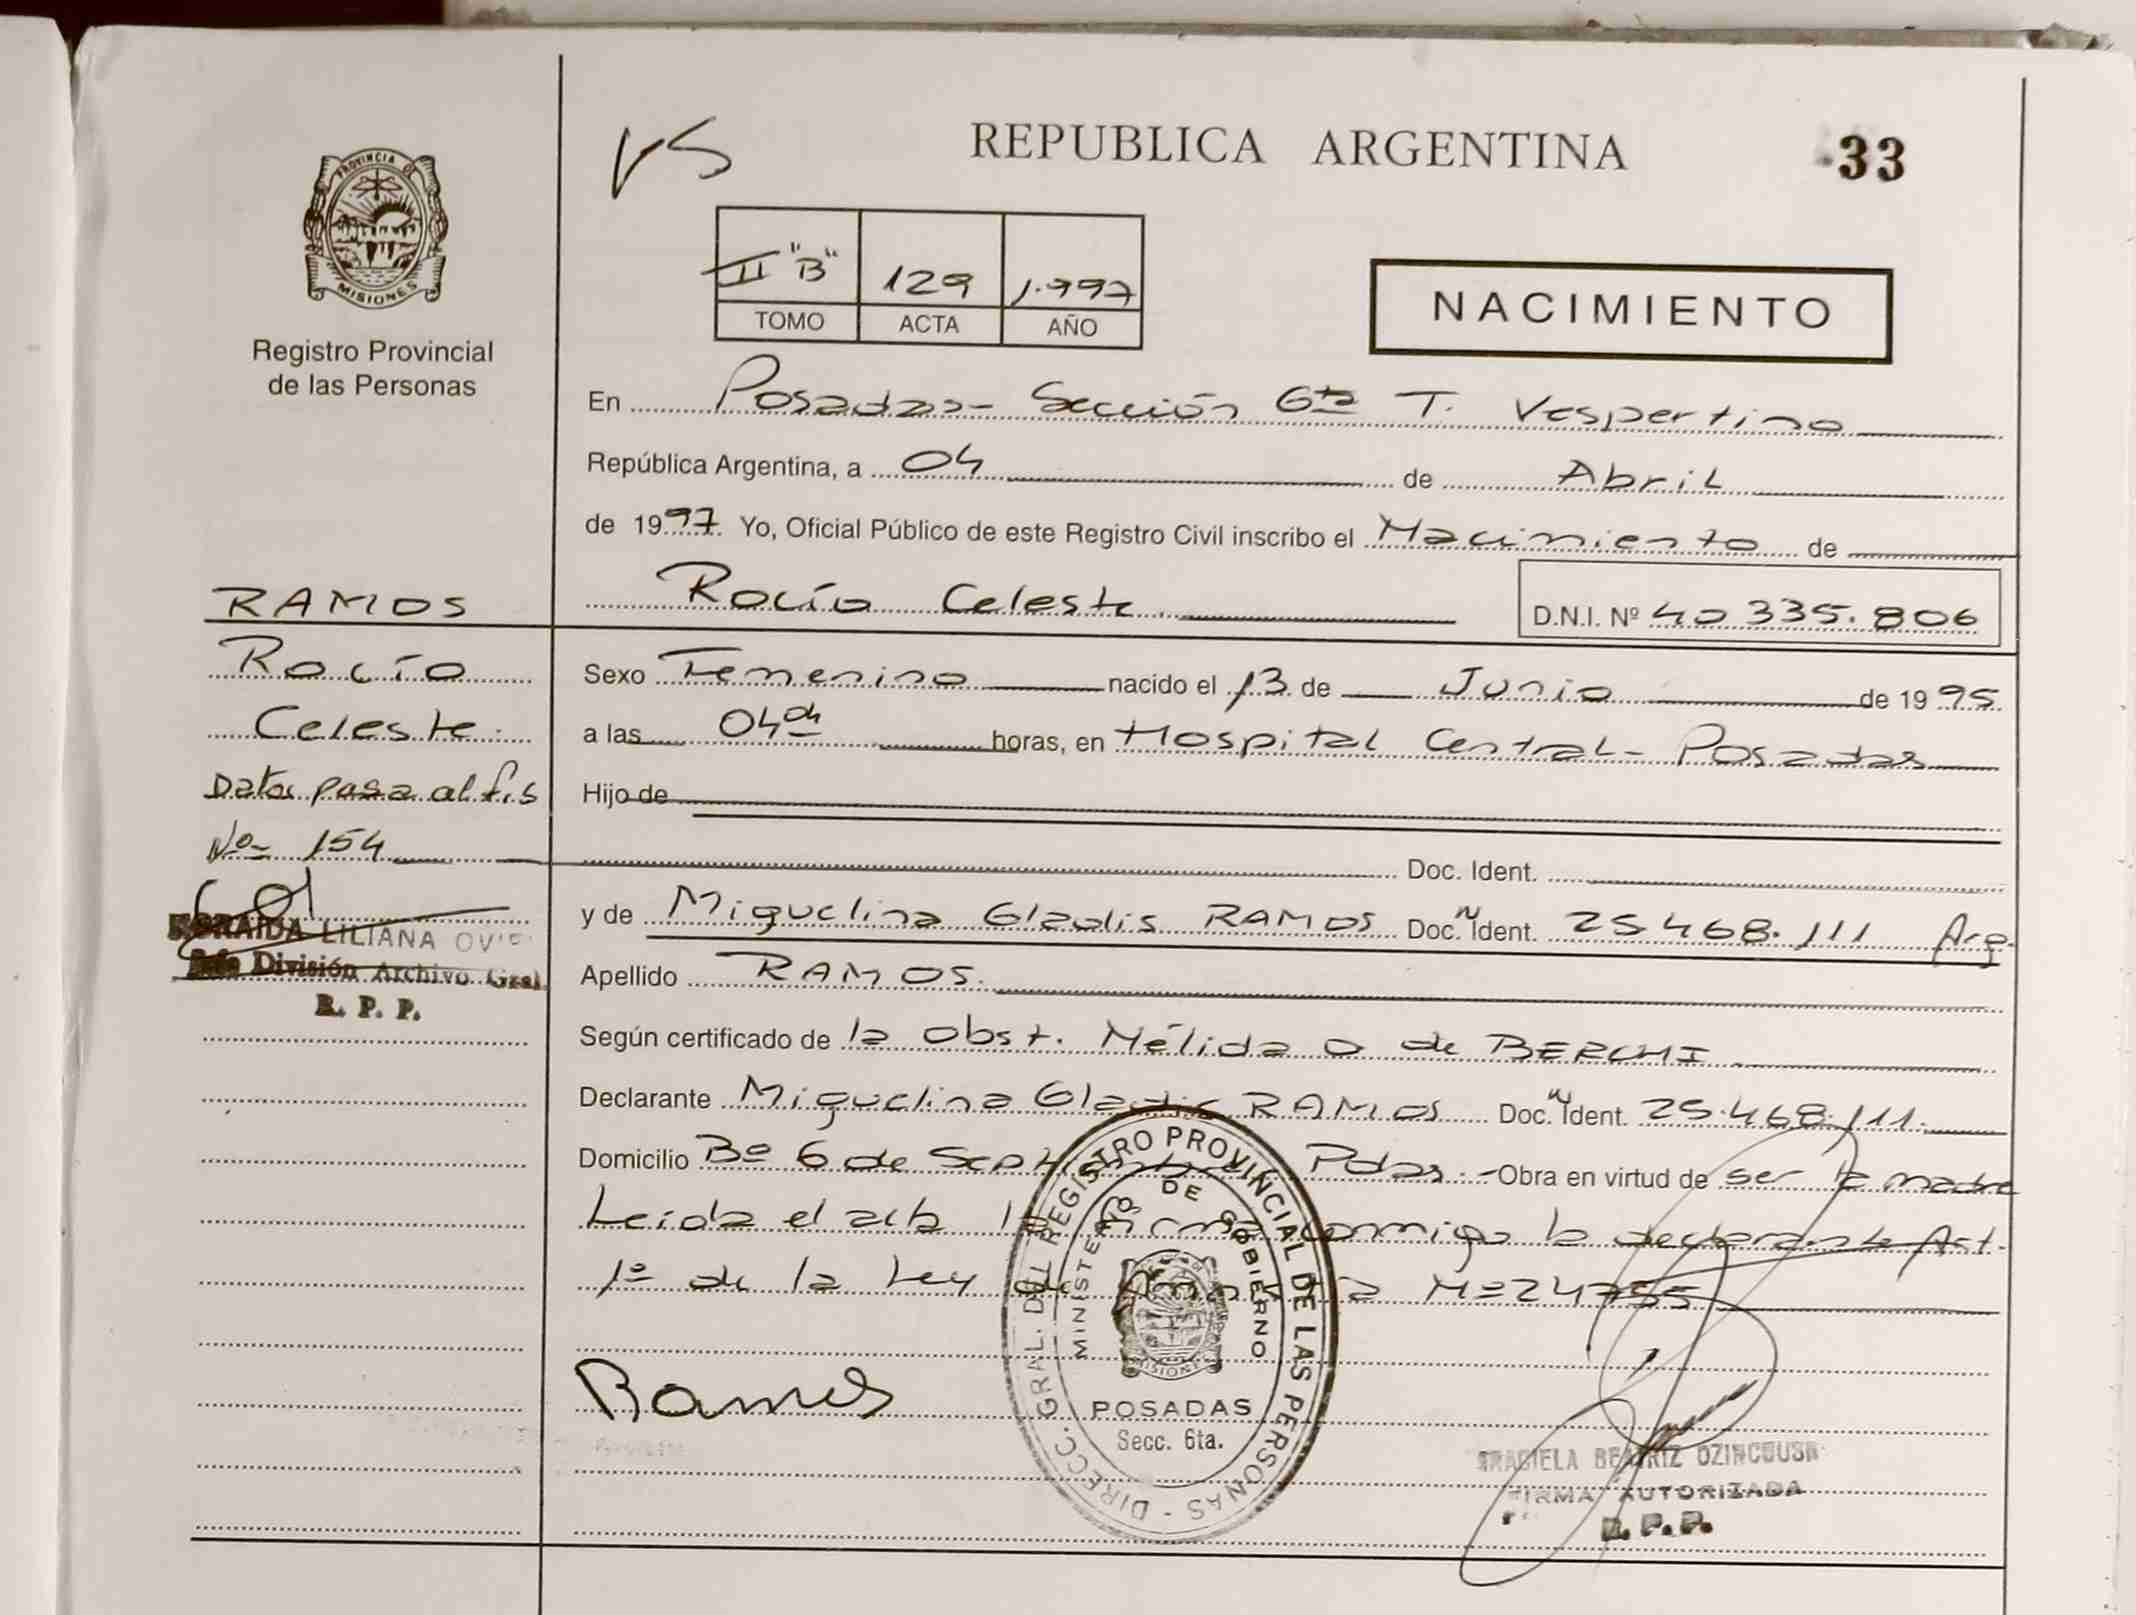 VS
REPUBLICA ARGENTINA
33
PROVINCIA DE MISIONES
Registro Provincial
de las Personas
II "B" 129 1.997
TOMO ACTA AÑO
NACIMIENTO
En Posadas- Sección 6ta T. Vespertino
República Argentina, a 04 de Abril
de 1997. Yo, Oficial Público de este Registro Civil inscribo el Nacimiento de
Rocío Celeste
D.N.I. Nº 40 335.806
RAMOS
Rocío
Celeste.
Datos pasa al fis
Nº 154
LILIANA
División Archivo Gral.
R. P. P.
Sexo Femenino nacido el 13 de Junio de 1995
a las 04 04 horas, en Hospital Central- Posadas
Hijo de
Doc. Ident.
y de Miguelina Gladis RAMOS Doc. N Ident. 25.468.111 Arg.
Apellido RAMOS.
Según certificado de la Obst. Nélida O de BERCHI
Declarante Miguelina Gladis RAMOS Doc. N Ident. 25.468.111.
Domicilio Bº 6 de Septiembre Pdas.- Obra en virtud de ser la madre
Leída el acta la firma conmigo la declarante Art.
1º de la Ley de Nº 24755
Ramos
DIRECC. GRAL. DEL REGISTRO PROVINCIAL DE LAS PERSONAS -
MINISTERIO DE GOBIERNO
MISIONES
POSADAS
Secc. 6ta.
GRACIELA BEATRIZ
FIRMA AUTORIZADA
R. P. P.